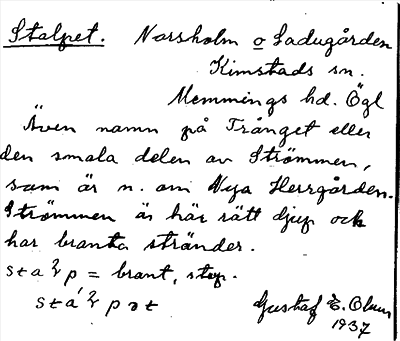 Stalpet. Norsholm o Ladugården
Kimstads sn.
Memmings hd. Ögl
Även namn på Trånget eller
den smala delen av Strömmen,
som är n. om Nya Herrgården.
Strömmen är här rätt djup och
har branta stränder.
stalp = brant, stup.
stálpət Gustaf E. Olsson
1937